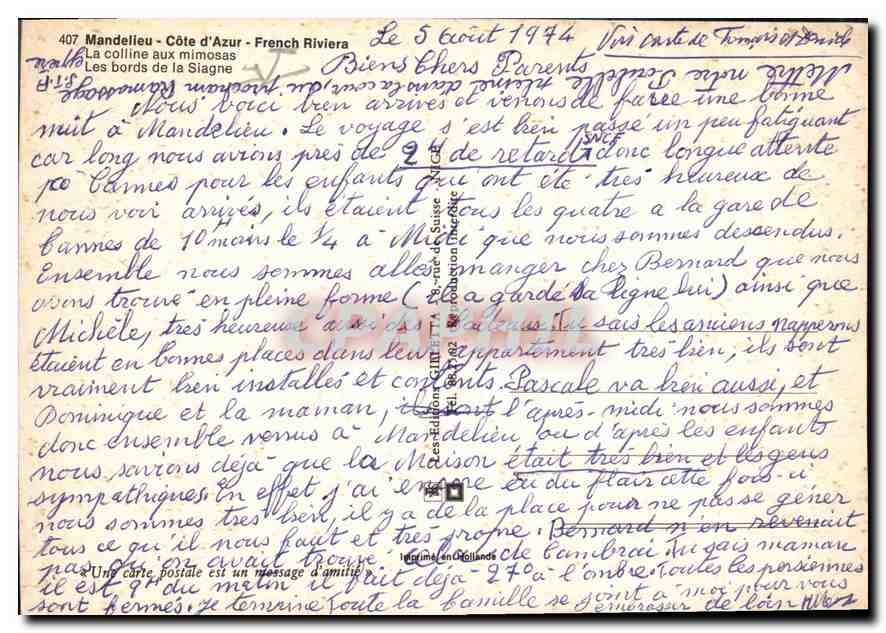 407 Mandelieu - Côte d'Azur - French Riviera
La colline aux mimosas
Les bords de la Siagne
Le 5 Août 1974
Voir carte de
Biens Chers Parents
Mettre notre Poubelle pleine dans la cour du prochain Ramassage
S.T.P.
Nous voici bien arrivés et venons de faire une bonne
nuit à Mandelieu. Le voyage s'est bien passé un peu fatiguant
car long nous avions près de 2h de retard SNCF donc longue attente
Cannes pour les enfants qui ont été très heureux de
nous voir arrivés, ils étaient tous les quatre a la gare de
Cannes de 10h moins le ¼ à Midi que nous sommes descendus.
Ensemble nous sommes allés manger chez Bernard que nous
avons trouvé en pleine forme (il a gardé la ligne lui) ainsi que
Michèle, très heureuse aussi des Tu sais les anciens napperons
étaient en bonnes places dans leur appartement très bien, ils sont
vraiment bien installés et contents. Pascale va bien aussi, et
Dominique et la maman, l'après-midi nous sommes
donc ensemble venus à Mandelieu, ou d'après les enfants
nous savions déjà que la Maison était très bien et les gens
sympathiques. En effet j'ai encore eu du flair cette fois-ci
nous sommes très bien, il y a de la place pour ne pas se gêner
tous ce qu'il nous faut et très propre. Bernard n'en revenait
pas qu'on avait trouvé de Cambrai. Tu sais maman
il est 9h du matin il fait déjà 27° à l'ombre. Toutes les persiennes
sont fermées. Je termine Toute la famille se joint à moi pour vous
embrasser de loin
Les Editions GILETTA - 18, rue de Suisse - NICE
Tél. 88.75.02 Reproduction Interdite
Imprimé en Hollande
« Une carte postale est un message d'amitié »
CPARTFIL